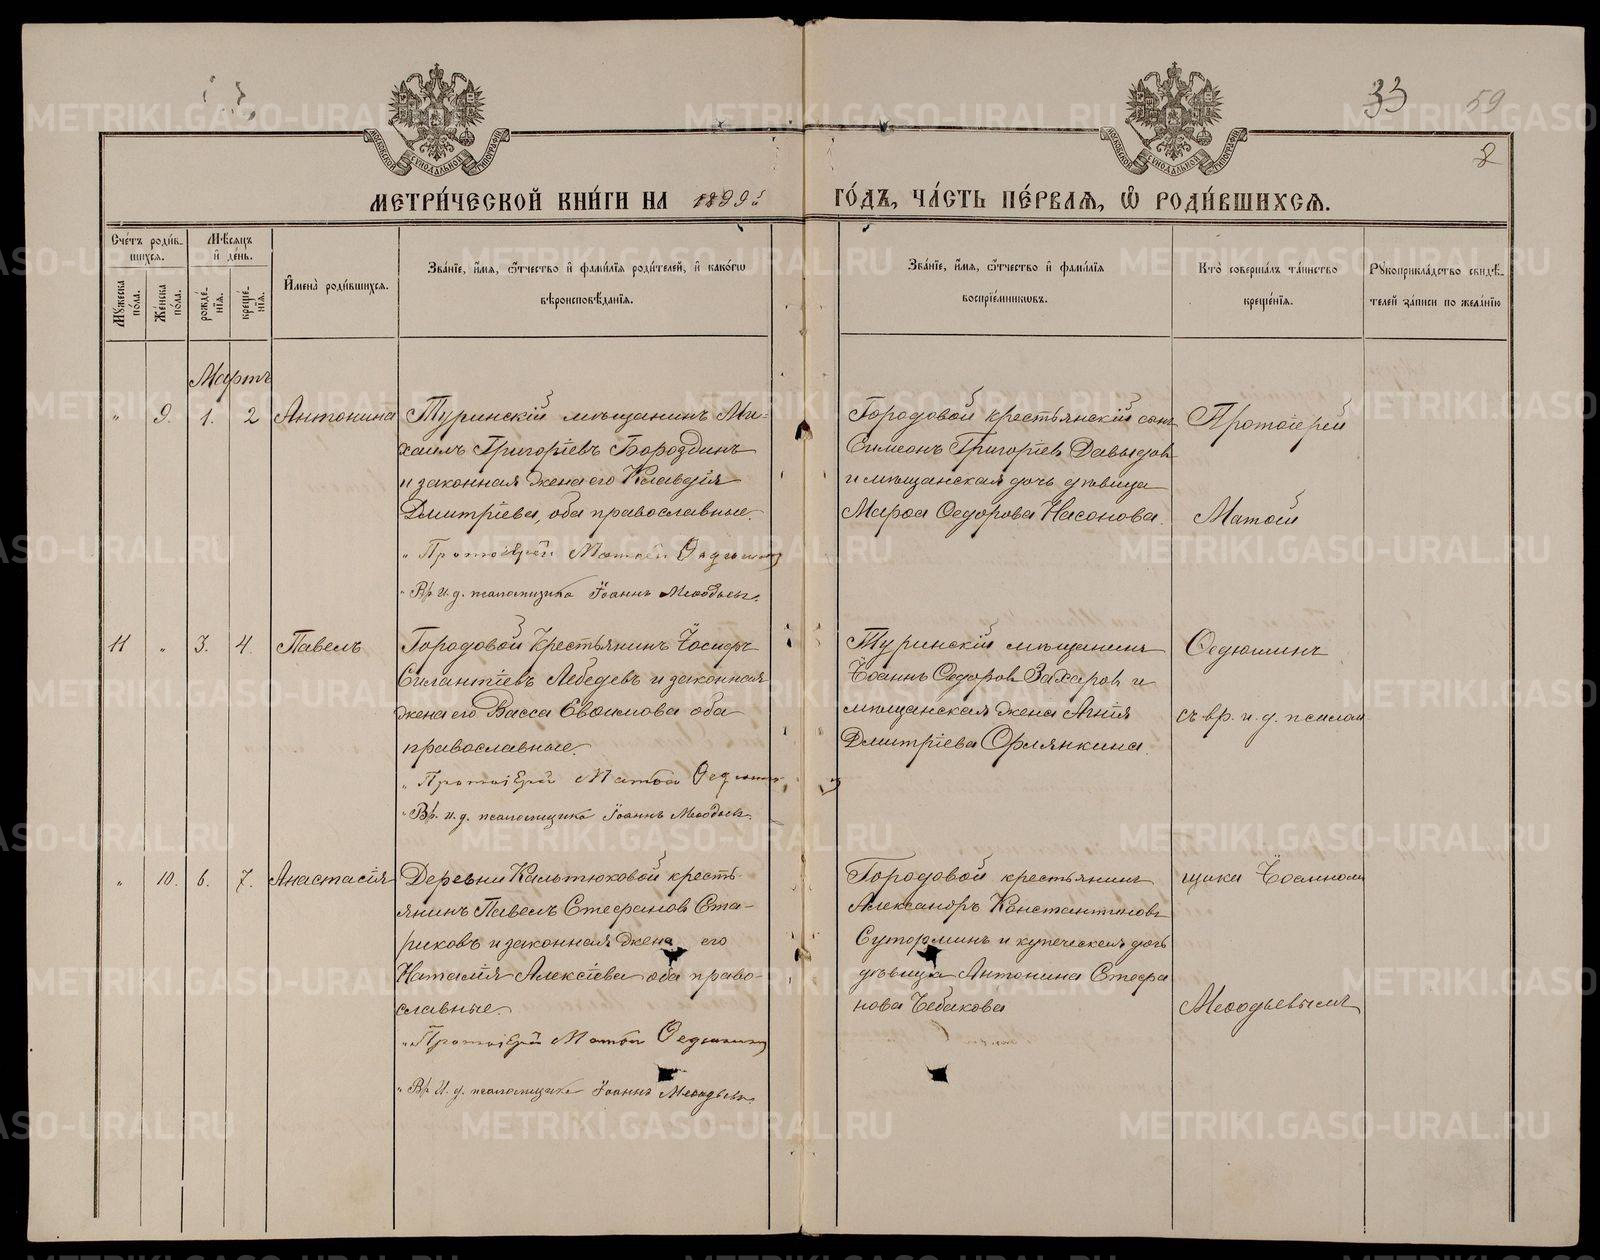 33 59
8
МЕТРИ́ЧЕСКОЙ КНИ́ГИ НА 1899 ГО́ДЪ, ЧА́СТЬ ПЕ́РВАЯ, Ѿ РОДИ́ВШИХСЯ.
Сче́тъ роди́в-
шихся.
Мѣ́сяцъ
и҆ де́нь.
И҆мена̀ роди́вшихся.
Зва́нїе, и҆́мя, ѻ҆́тчество и҆ фами́лїя роди́телей, и҆ како́гѡ
вѣроисповѣ́данїя.
Зва́нїе, и҆́мя, ѻ҆́тчество и҆ фами́лїя
воспрїе́мникѡвъ.
Кто̀ соверша́лъ та́инство
креще́нїя.
Рꙋкоприкла́дство свидѣ́-
телей за́писи по жела́нїю
Мꙋ́жеска
по́ла.
Же́нска
по́ла.
рожде́-
нїя.
креще́-
нїя.
Мартъ
" 9. 1. 2 Антонина
Туринскій мѣщанинъ Ми-
хаилъ Григоріевъ Бороздинъ
и законная жена его Клавдія
Дмитріева, оба православные.
" Протоіерей Матѳей Ѳедюшинъ
" Вр. и. д. псаломщика Іоаннъ Меѳодьевъ.
Городовой крестьянскій сынъ
Симеонъ Григоріев Давыдов
и мѣщанская дочь дѣвица
Марѳа Ѳедорова Насонова.
Протоіерей
Матѳей
11 " 3. 4. Павелъ
Городовой крестьянинъ Іосифъ
Силантіевъ Лебедевъ и законная
жена его Васса Евѳимова оба
православные.
" Протоіерей Матѳей Ѳедюшинъ
" Вр. и. д. псаломщика Іоаннъ Меѳодьевъ.
Туринскій мѣщанинъ
Іоаннъ Ѳедоров Захаров и
мѣщанская жена Агнія
Дмитріева Орлянкина.
Ѳедюшинъ
съ вр. и. д. псалом
" 10. 6. 7. Анастасія
Деревни Кальтюковой кресть
янинъ Павелъ Стефановъ Ста-
риковъ и законная жена его
Наталія Алексіева оба право-
славные.
" Протоіерей Матѳей Ѳедюшинъ
" Вр. и. д. псаломщика Іоаннъ Меѳодьевъ.
Городовой крестьянинъ
Александръ Константиновъ
Суторминъ и купеческая дочь
дѣвица Антонина Стефа
нова Чебакова
щика Іоанномъ
Меѳодьевымъ
METRIKI.GASO-URAL.RU